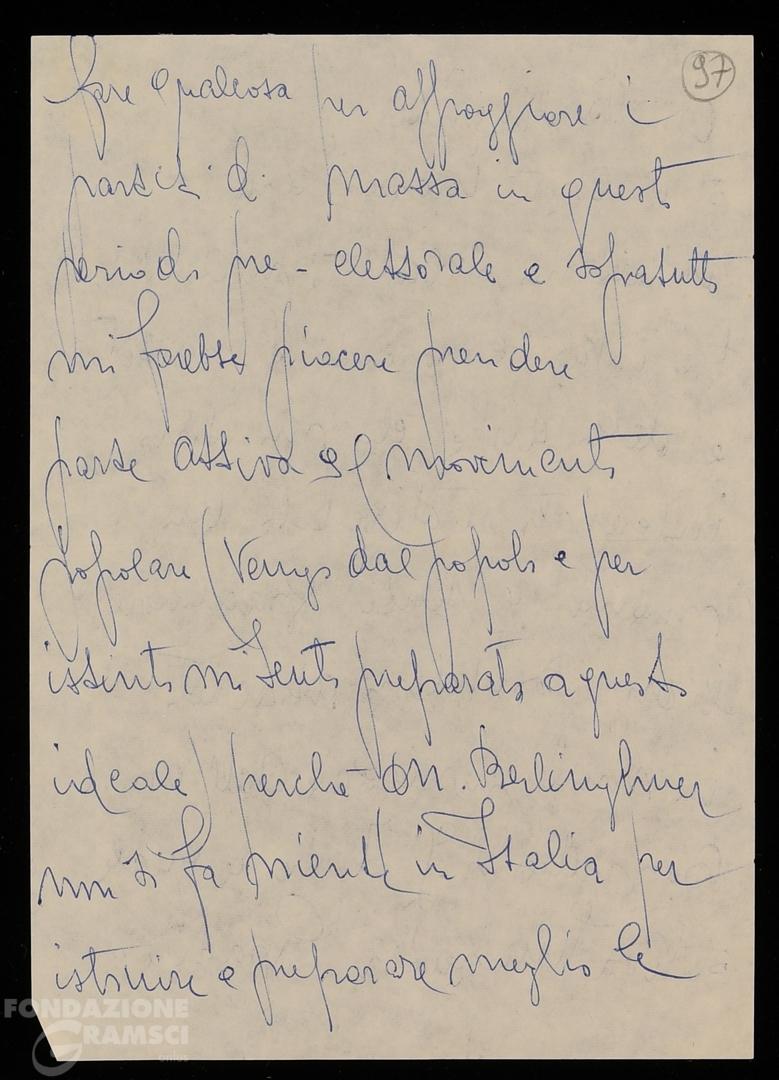 97
fare qualcosa per appoggiare i
partiti di massa in questo
periodo pre-elettorale e sopratutto
mi farebbe piacere prendere
parte attiva al movimento
popolare (Vengo dal popolo e per
istinto mi sento preparato a questo
ideale) perché On. Berlinghuer
non si fa niente in Italia per
istruire e preparare meglio le
FONDAZIONE
GRAMSCI
onlus